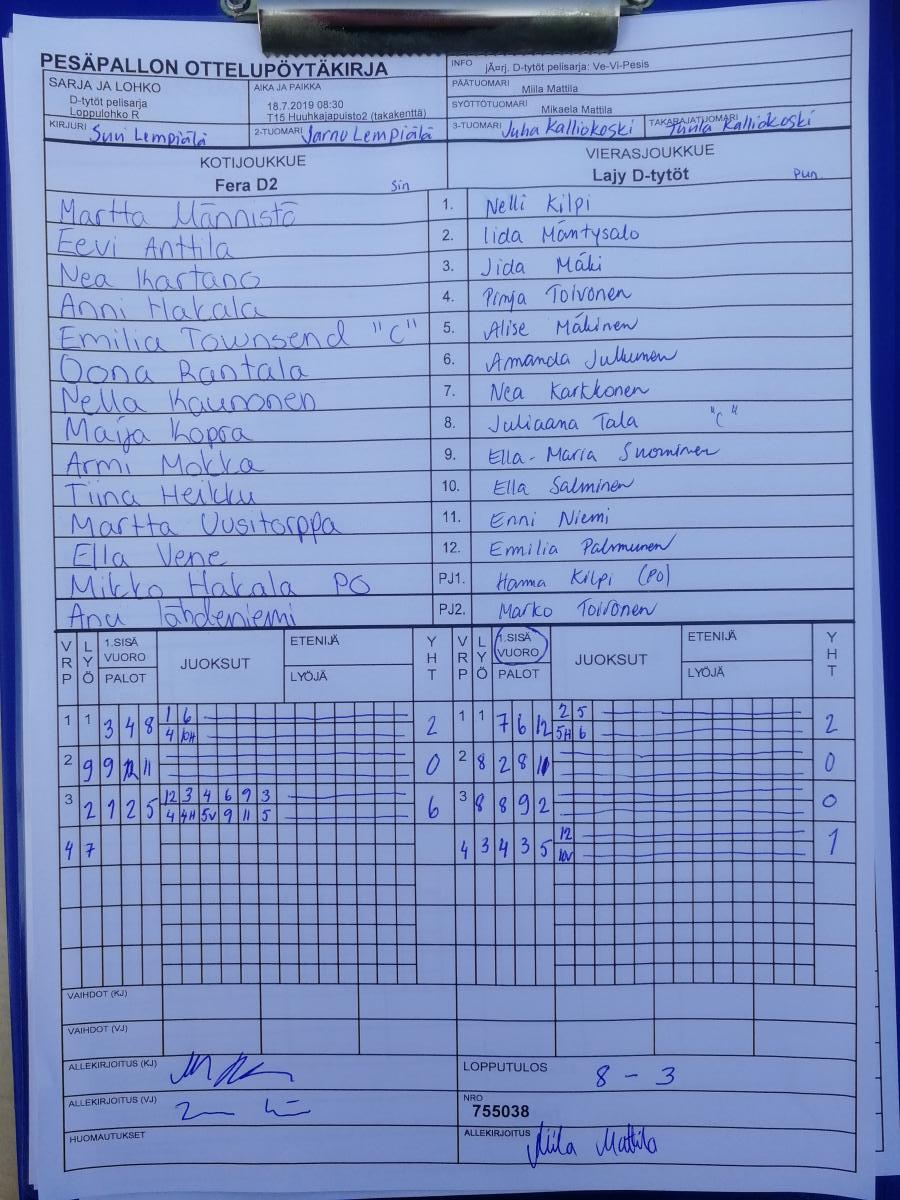 PESÄPALLON OTTELUPÖYTÄKIRJA
INFO jÃ¤rj. D-tytöt pelisarja: Ve-Vi-Pesis
SARJA JA LOHKO
D-tytöt pelisarja
Loppulohko R
AIKA JA PAIKKA
18.7.2019 08:30
T15 Huuhkajapuisto2 (takakenttä)
PÄÄTUOMARI Miila Mattila
SYÖTTÖTUOMARI Mikaela Mattila
KIRJURI Suvi Lempiälä
2-TUOMARI Jarno Lempiälä
3-TUOMARI Juha Kalliokoski
TAKARAJATUOMARI Tuula Kalliokoski
KOTIJOUKKUE
Fera D2 Sin
VIERASJOUKKUE
Lajy D-tytöt Pun
Martta Männistö 1. Nelli Kilpi
Eevi Anttila 2. Iida Mäntysalo
Nea Kartano 3. Jida Mäki
Anni Hakala 4. Pinja Toivonen
Emilia Townsend "C" 5. Alise Mäkinen
Oona Rantala 6. Amanda Julkunen
Nella Kaunonen 7. Nea Karkkonen
Maija Kopra 8. Juliaana Tala "C"
Armi Mokka 9. Ella-Maria Suominen
Tiina Heikku 10. Ella Salminen
Martta Uusitorppa 11. Enni Niemi
Ella Vene 12. Emilia Palmunen
Mikko Hakala PO PJ1. Hanna Kilpi (PO)
Anu Lähdeniemi PJ2. Marko Toivonen
VRP LYÖ 1.SISÄ VUORO PALOT JUOKSUT ETENIJÄ LYÖJÄ YHT VRP LYÖ 1.SISÄ VUORO PALOT JUOKSUT ETENIJÄ LYÖJÄ YHT
1 1 3 4 8 1 6 2 1 1 7 6 12 2 5 2
4 10H 5H 6
2 9 9 12 11 0 2 8 2 8 11 0
3 2 1 2 5 12 3 4 6 9 3 6 3 8 8 9 2 0
4 4H 5V 9 11 5
4 7 4 3 4 3 5 12 1
10V
VAIHDOT (KJ)
VAIHDOT (VJ)
ALLEKIRJOITUS (KJ)
LOPPUTULOS 8 - 3
ALLEKIRJOITUS (VJ)
NRO
755038
HUOMAUTUKSET
ALLEKIRJOITUS Miila Mattila